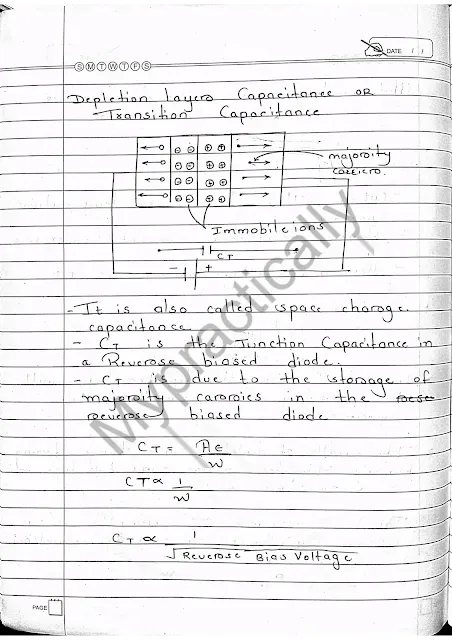 DATE / /
S M T W T F S
Depletion Layers Capacitance OR
Transition Capacitance
majority
carriers.
Immobile ions
CT
- +
- It is also called space charge
capacitance
- CT is the Junction Capacitance in
a Reverse biased diode.
- CT is due to the storage of
majority carriers in the
reverse biased diode
CT = Aϵ
W
CT ∝ 1
W
CT ∝ 1
√Reverse Bias Voltage
Mypractically
PAGE